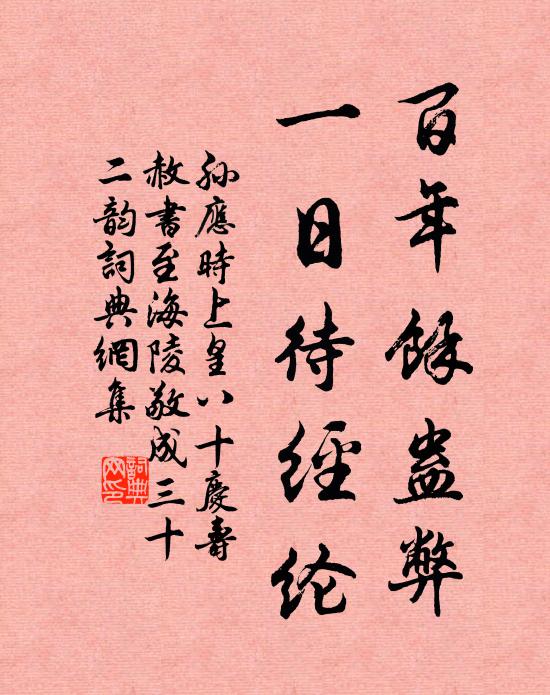 百年餘蠹弊
一日待經纶
孙應時上皇八十慶壽
赦書至海陵敬成三十
二韵詞典網集
詞典网印